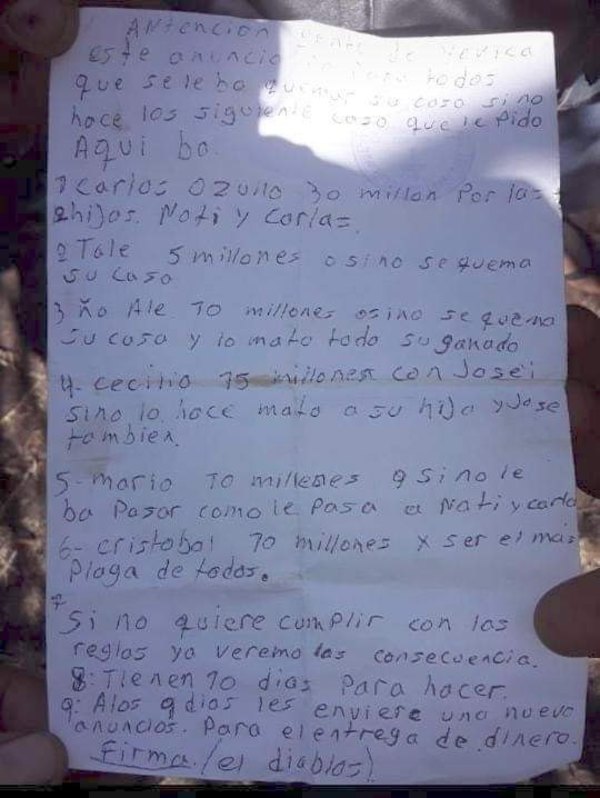 Antencion gente de
este anuncio todos
que se le ba quemar su caso sino
hace los siguiente caso que le Pido
AQui bo.
1 carlos Ozuno 30 millon Por las
2 hijas. Noti y Carla=
2 Tole 5 millones o sino se quema
su caso
3 ño Ale 10 millones osino se quema
su casa y lo mato todo su ganado
4- cecilio 15 millones con Jose i
sino lo hace mato a su hija y Jose
tombien.
5- mario 10 millenes o sino le
ba Pasar como le Pasa a Nati y carla
6- cristobal 70 millones x ser el mas
Plaga de todos.
7
Si no quiere cumplir con las
reglas ya veremo las consecuencia.
8: Tienen 10 dias Para hacer.
9: Alos 9 dias les enviere uno nuevo
anuncios. Para el entrega de dinero.
Firma./(el diablos)